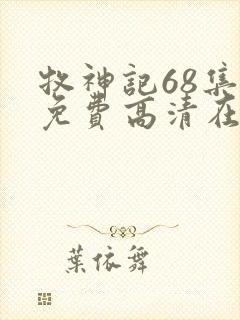 牧神记68集
免費高清在
葉依舞